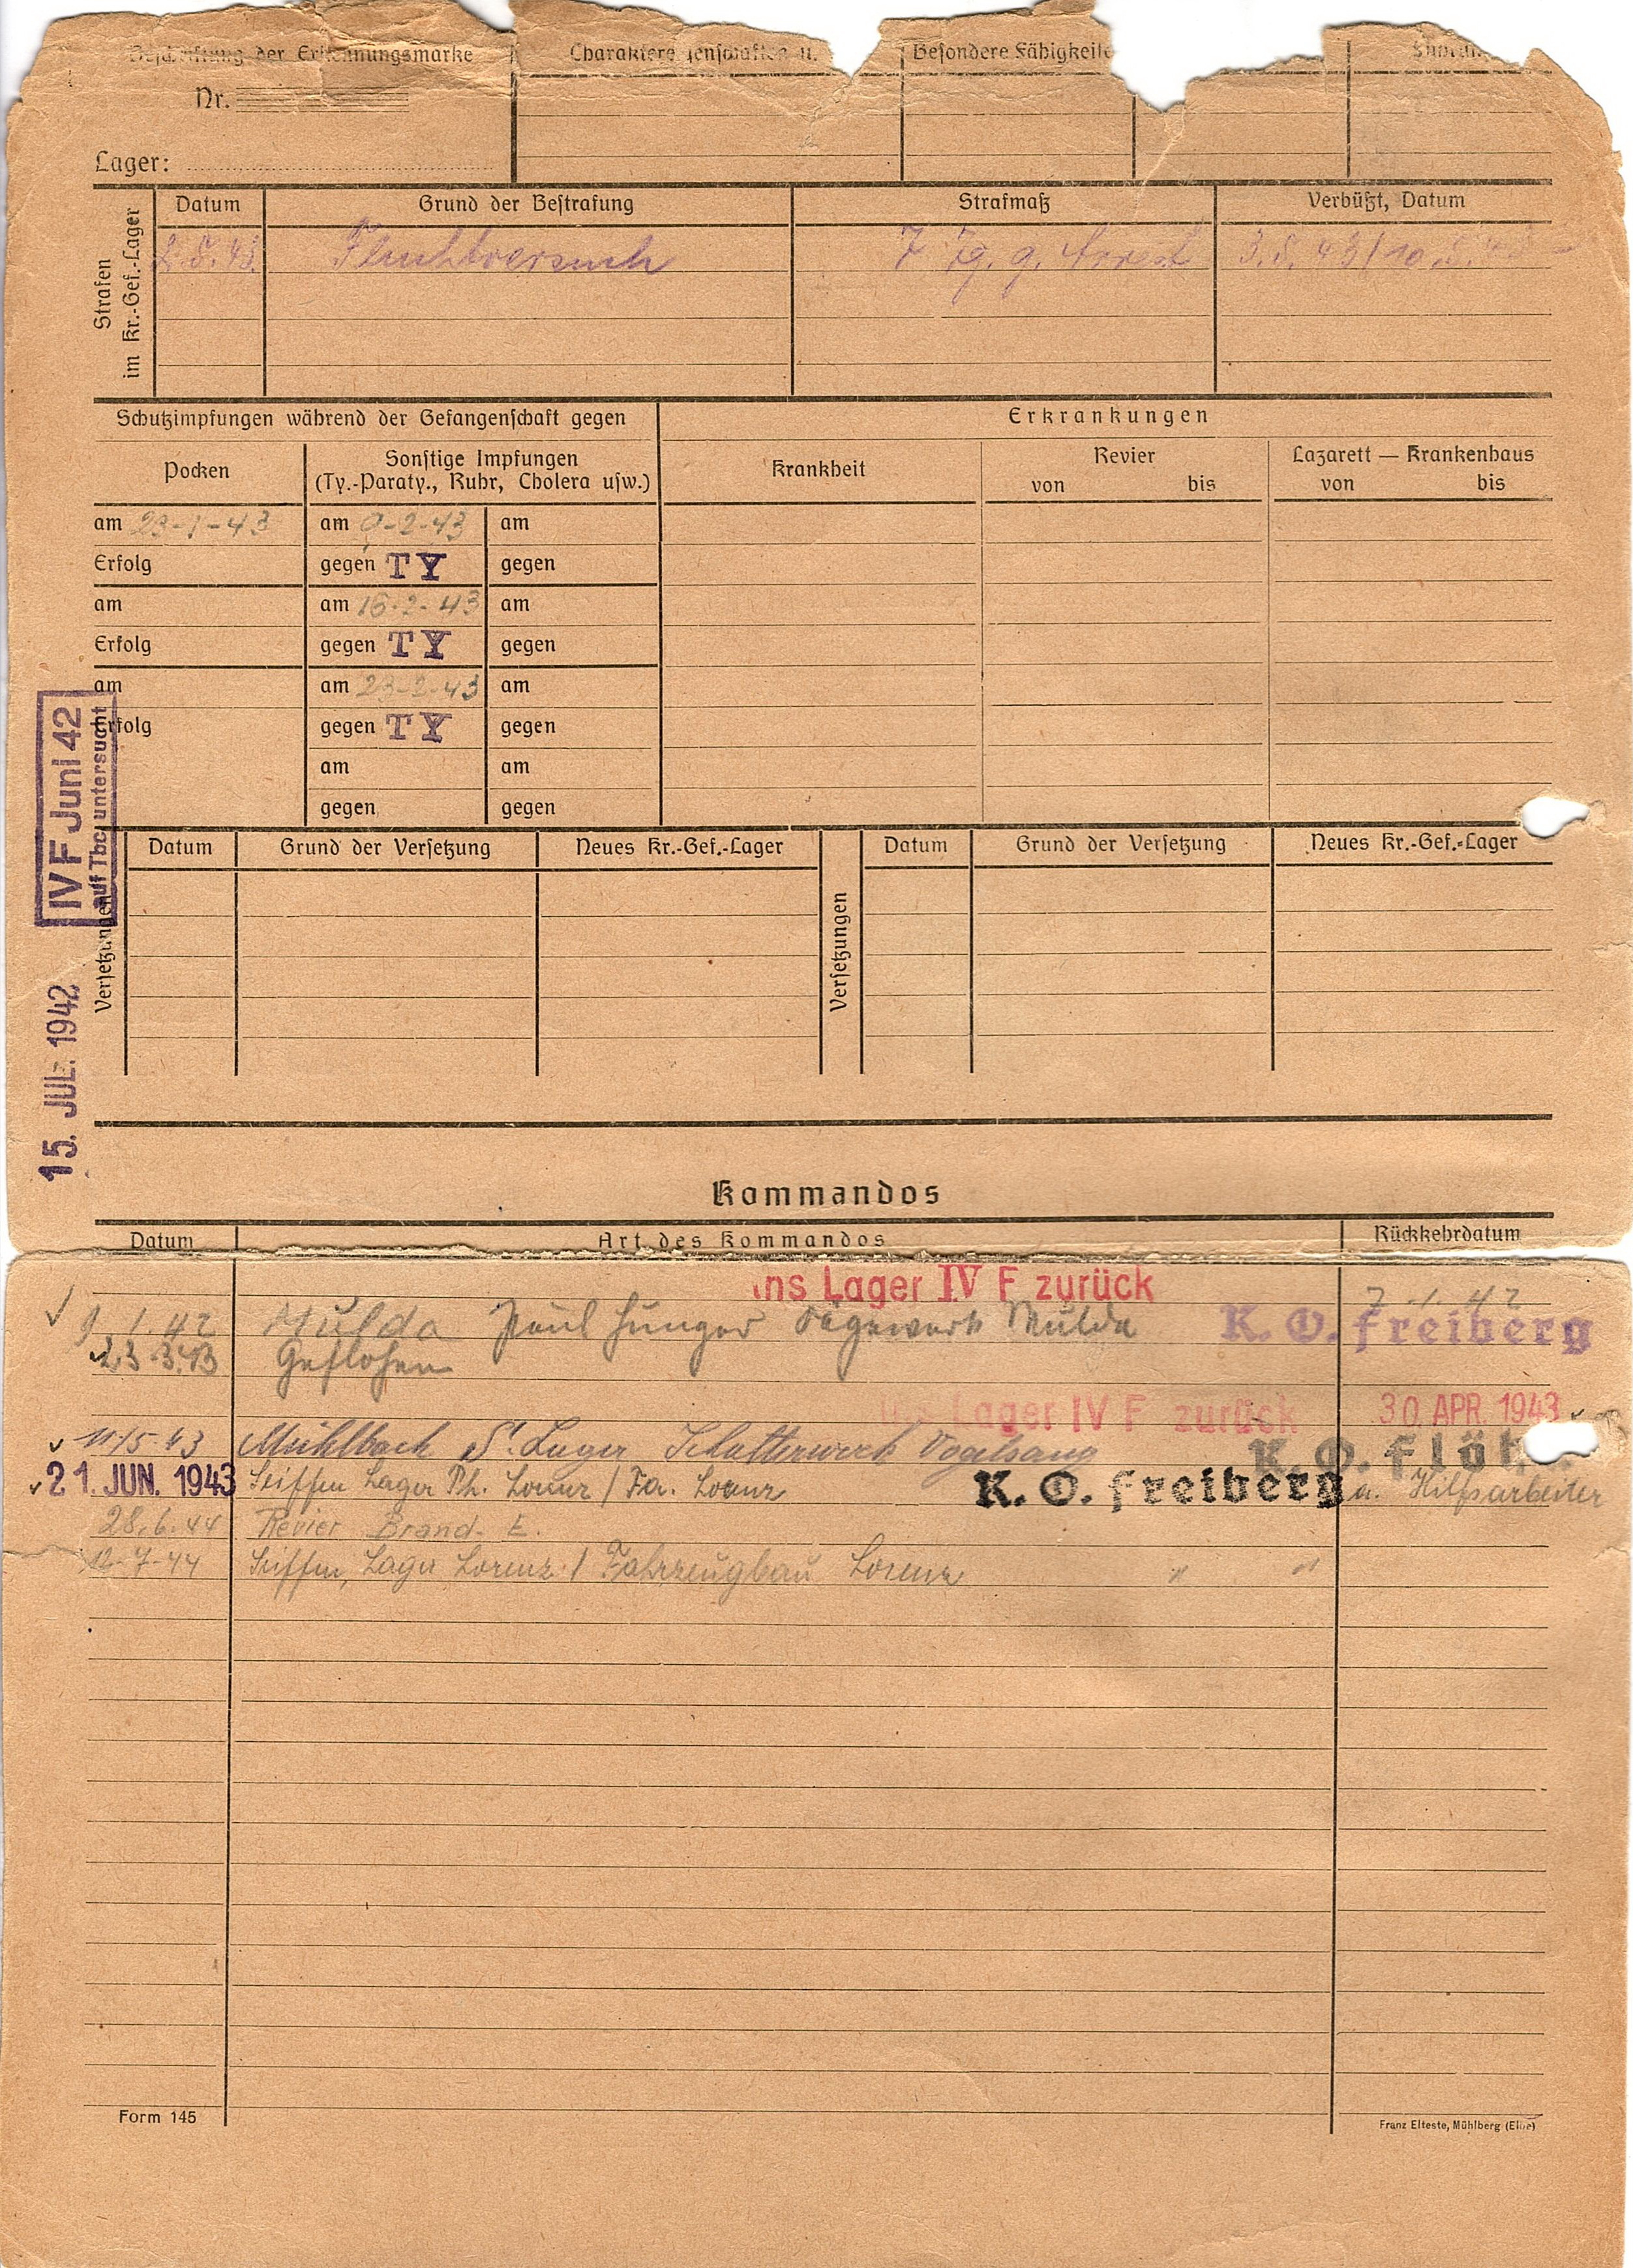 Beschriftung der Erkennungsmarke
Besondere Fähigkeite
Nr.
Lager:
Strafen im Kr.-Gef.-Lager
Datum Grund der Bestrafung Strafmaß Verbüßt, Datum
Fluchtversuch 7 Tg. g. Arrest 3.5.43/10.5.43
Schutzimpfungen während der Gefangenschaft gegen
Erkrankungen
Pocken
Sonstige Impfungen
(Ty.-Paraty., Ruhr, Cholera usw.)
Krankheit
Revier
von bis
Lazarett — Krankenhaus
von bis
am 23-1-43 am 9-2-43 am
Erfolg gegen TY gegen
am am 16-2-43 am
Erfolg gegen TY gegen
am am 23-2-43 am
Erfolg gegen TY gegen
am am
gegen gegen
IV F Juni 42
auf Tbc untersucht
15. JUL. 1942
Versetzungen
Datum Grund der Versetzung Neues Kr.-Gef.-Lager
Versetzungen
Datum Grund der Versetzung Neues Kr.-Gef.-Lager
Kommandos
Datum Art des Kommandos Rückkehrdatum
ins Lager IV F zurück 7.1.42
9.1.42 Mulda Paul Hunger Sägewerk Mulda K. O. Freiberg
23.3.43 Geflohen
ins Lager IV F zurück 30. APR. 1943
11/5.43 Mühlbach Vogelsang K. O. Flöh
21. JUN. 1943 Seiffen Lager Ph. Lorenz / Fa. Lorenz K. O. Freiberg a. Hilfsarbeiter
28.6.44 Revier Brand-E.
12-7-44 Seiffen, Lager Lorenz / Fahrzeugbau Lorenz " "
Form 145
Franz Elteste, Mühlberg (Elbe)